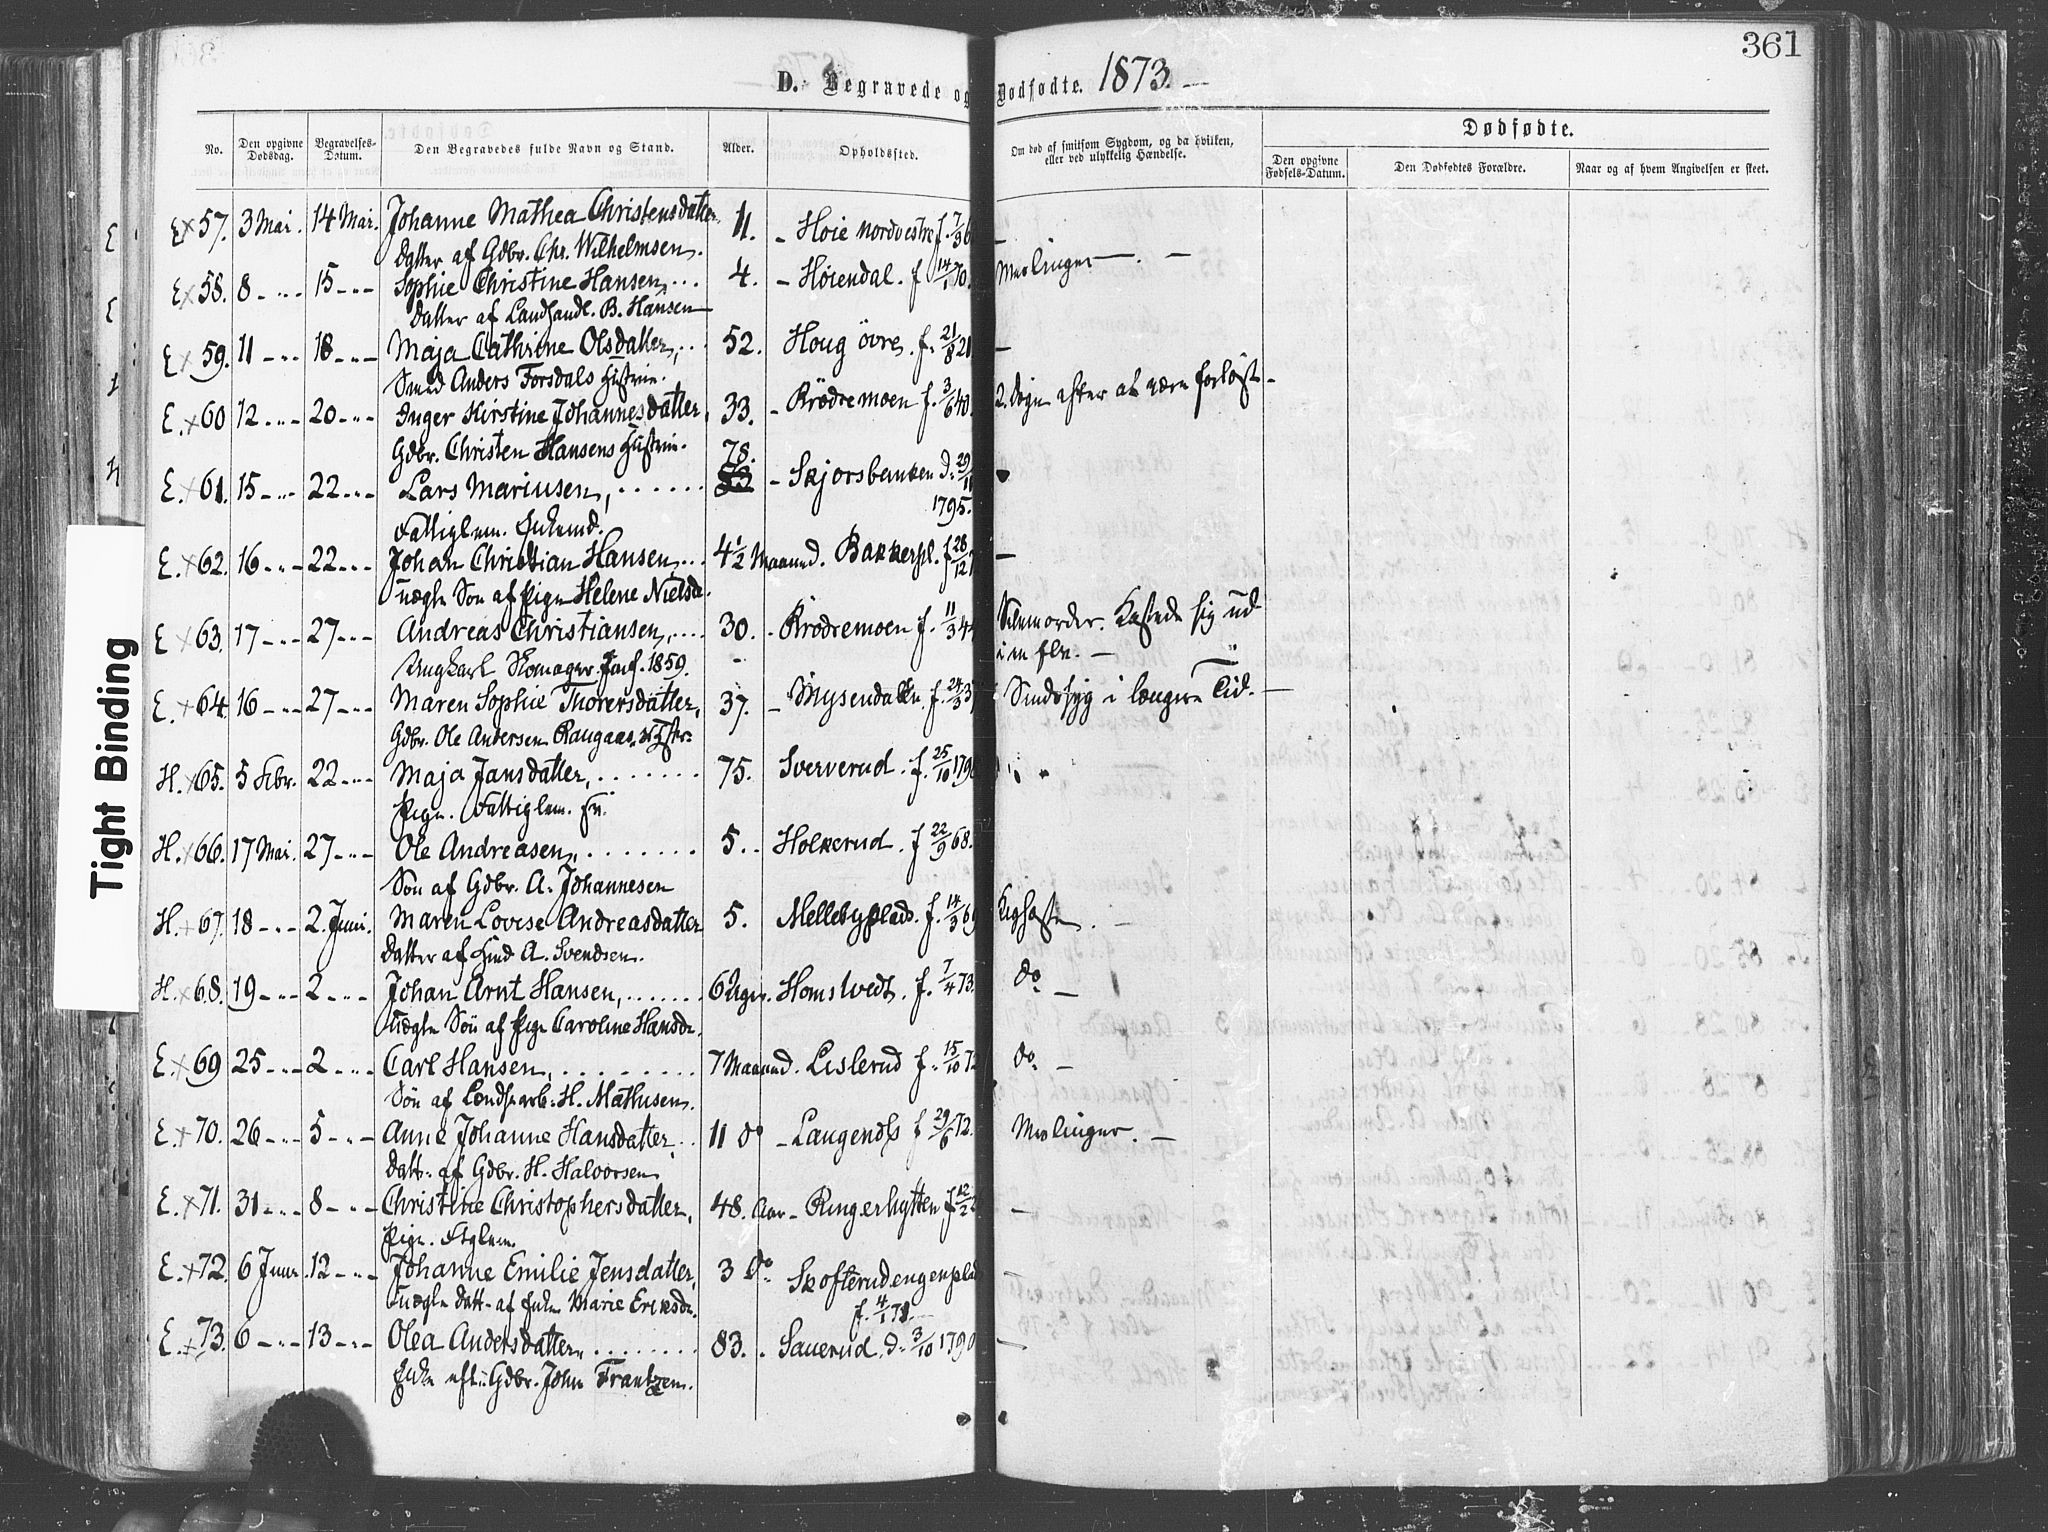 361
D. Begravede og Dødfødte. 1873.
No. Den opgivne Dødsdag. Begravelses-Datum. Den Begravedes fulde Navn og Stand. Alder. Opholdssted. Om død af smitsom Sygdom, og da hvilken, eller ved ulykkelig Hændelse. Dødfødte.
Den opgivne Fødsels-Datum. Den Dødfødtes Forældre. Naar og af hvem Angivelsen er skeet.
E × 57. 3 Mai. 14 Mai. Johanne Mathea Christensdatter 11. - Høie nordvestre f. 7/9 6 -
Datter af Gdbr. Chr. Wilhelmsen.
E × 58. 8 - " - 15 - " - Sophie Christine Hansen, ... 4. - Høiendal. f 14/1 70. Meslinger - . -
Datter af Landhandl. B. Hansen
E × 59. 11 - " - 18 - " - Maja Cathrine Olsdatter, ... 52. Houg övre. f. 21/8 21 -
Smed Anders Forsdals Hustrue.
E. × 60 12 - " - 20 - " - Inger Kirstine Johannesdatter, 33. - Krödremoen f. 3/6 40. 2. Dage efter at være forløst -
Gdbr. Christen Hansens Hustrue.
E. × 61. 15 - " - 22 - " - Lars Mariusen, ...... 78. - Skjorsbanken D. 29/11 1795.
Fattiglem. Enkemd.
E. × 62. 16 - " - 22 - " - Johan Christian Hansen, ... 4 1/2 Maaned. Bakkerpl. f 28/12 -
uægte Søn af Pige Helene Nielsda.
E × 63. 17 - " - 27 - " - Andreas Christiansen, .... 30. - Krödremoen f. 11/3 4 Selvmorder. Kastede sig ud
Ungkarl Skomager. Conf. 1859. i en Elv. -
E. × 64. 16 - " - 27 - " - Maren Sophie Thorersdatter, 37. - Mysendalen f. 24/3 3 Sindssyg i længere Tid. -
Gdbr. Ole Andersen Raugaas Hustr.
H. × 65. 5 Febr. 22 - " - Maja Jansdatter, ....... 75. Sververud. f. 25/10 179
Pige. Fattiglem.
H. × 66. 17 Mai. 27 - " - Ole Andreasen, ........ 5. - Holkerud. f 22/9 68.
Søn af Gdbr. A. Johannesen
H. × 67. 18 - " - 2. Juni. Maren Lovise Andreasdatter 5. Mellebyplads. f. 14/3 6 Kighoste. -
Datter af Hmd A. Svendsen.
H. × 68. 19 - " - 2 - " - Johan Arnt Hansen, ...... 6 Uger. Homstvedt. f. 7/4 73. do -
Uægte Søn af Pige Caroline Hansda.
E. × 69 25 - " - 2 - " - Carl Hansen, ......... 7 Maaned. Lislerud f. 15/10 72 do -
Søn af Landharb. H. Mathisen.
E. × 70. 26 - " - 5 - " - Anne Johanne Hansdatter, .. 11 do - Laugends f 29/6 72. Meslinger. -
Datt. af Gdbr. H. Halvorsen
E. × 71. 31 - " - 8 - " - Christine Christophersdatter, 48. Aar - Ringerhytten f 12/2 2 -
Pige. Ftglem.
E. × 72. 6 Juni. 12 - " - Johanne Emilie Jensdatter, 3 do Skofterudengenplad
Uægte Datt. af Enke Marie Eriksda. f. 4/1 71.
E. × 73. 6 - " - 13 - " - Olea Andersdatter, ....... 83. . Sauerud. D. 3/10 1790 -
Enke eft. Gdbr. John Frantzen.
Tight Binding